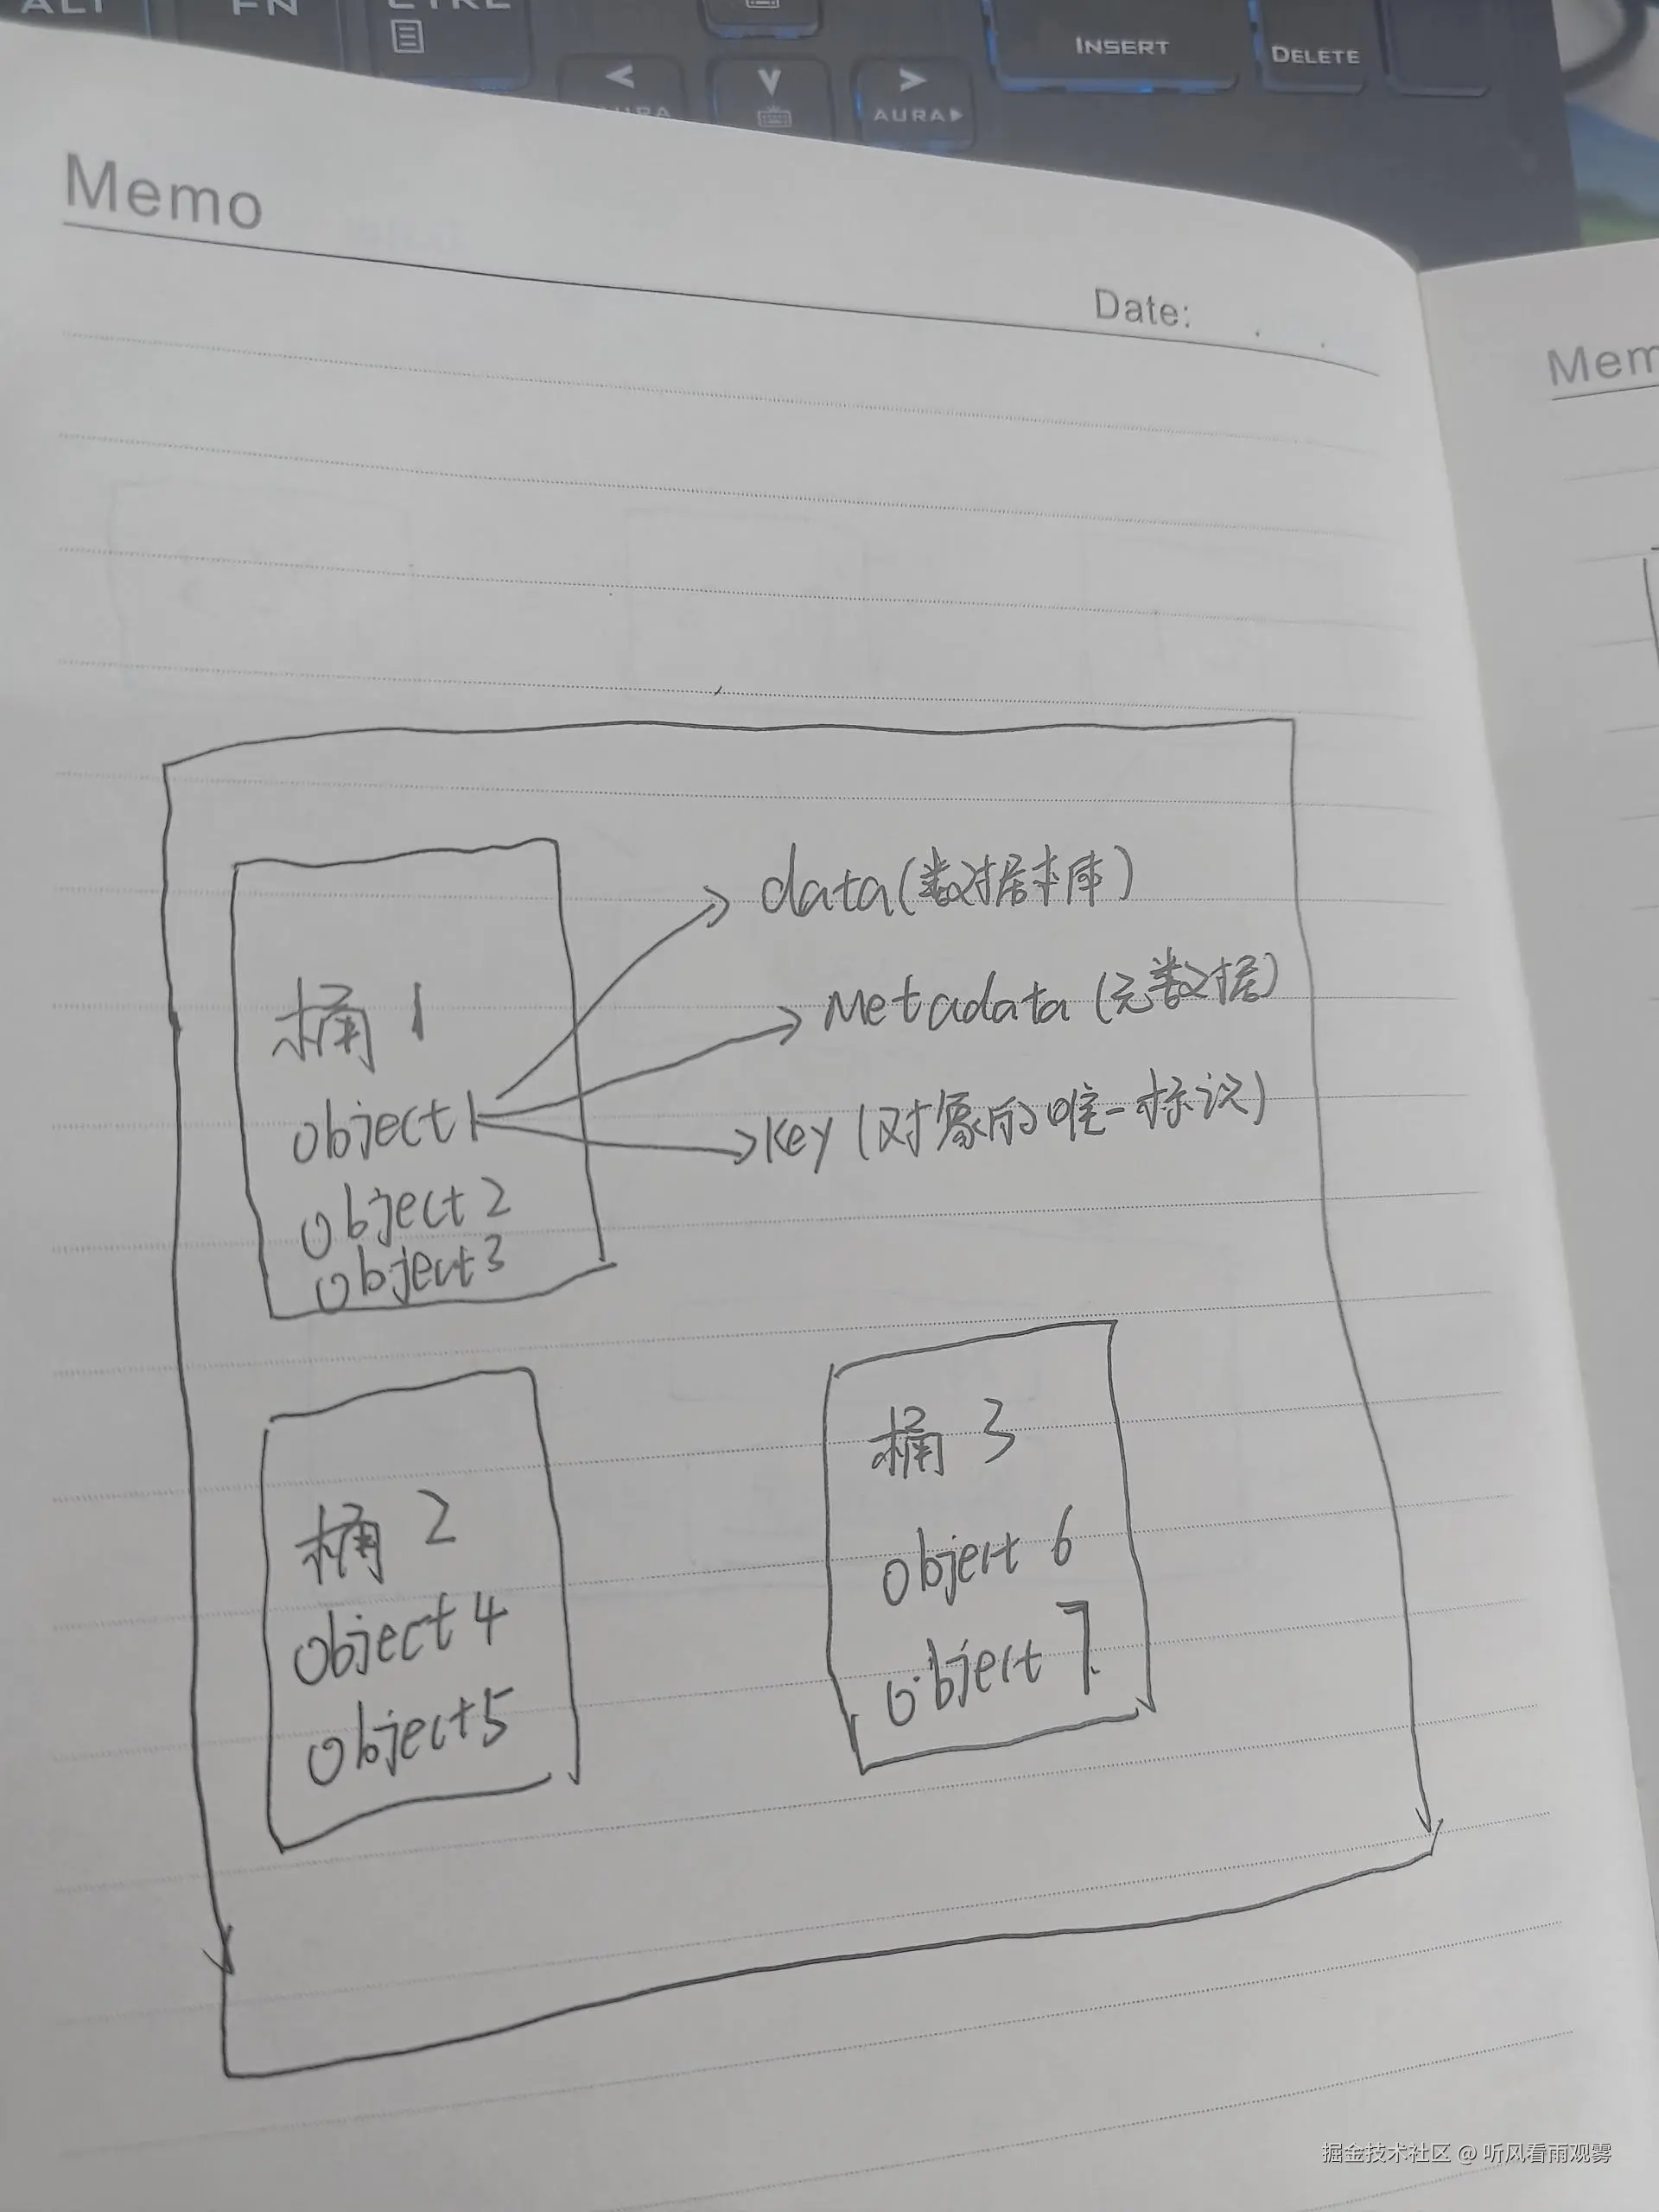 ALT FN CTRL
INSERT
DELETE
AURA
AURA
Memo
Date:
Mem
桶 1
object1
object2
object3
data(数据本库)
Metadata (元数据)
key (对象的唯一标识)
桶 2
object4
object5
桶 3
object 6
object 7
掘金技术社区 @ 听风看雨观雾